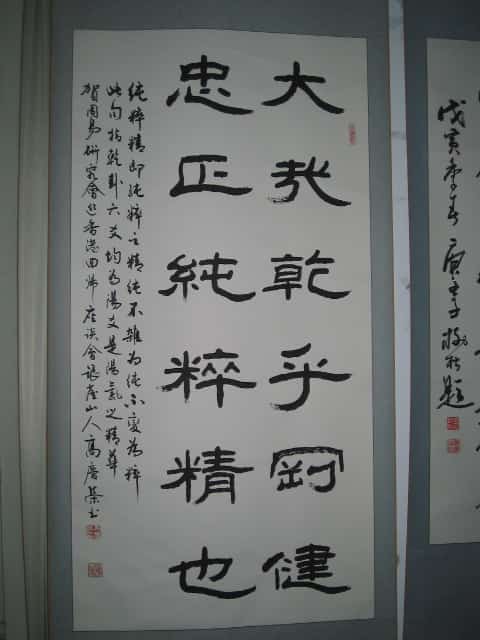 大哉乾乎剛健
忠正純粹精也
純粹精即純粹之精純不雜為純不變為粹
此句指乾卦六爻均為陽爻是陽氣之精華
賀周易研究會迎香港回歸座談會山人高書
戊寅季春題